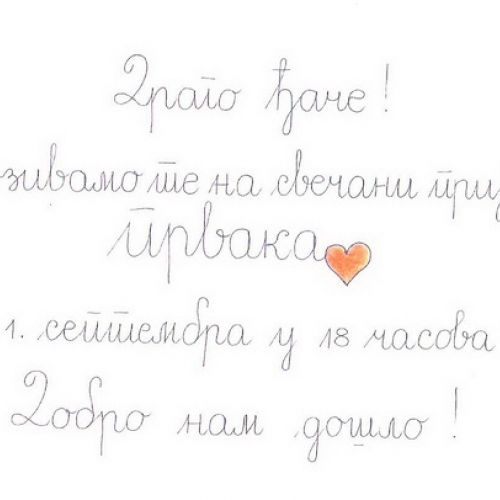 Драго ђаче!
зивамо те на свечани при
првака
1. септембра у 18 часова
Добро нам дошло!